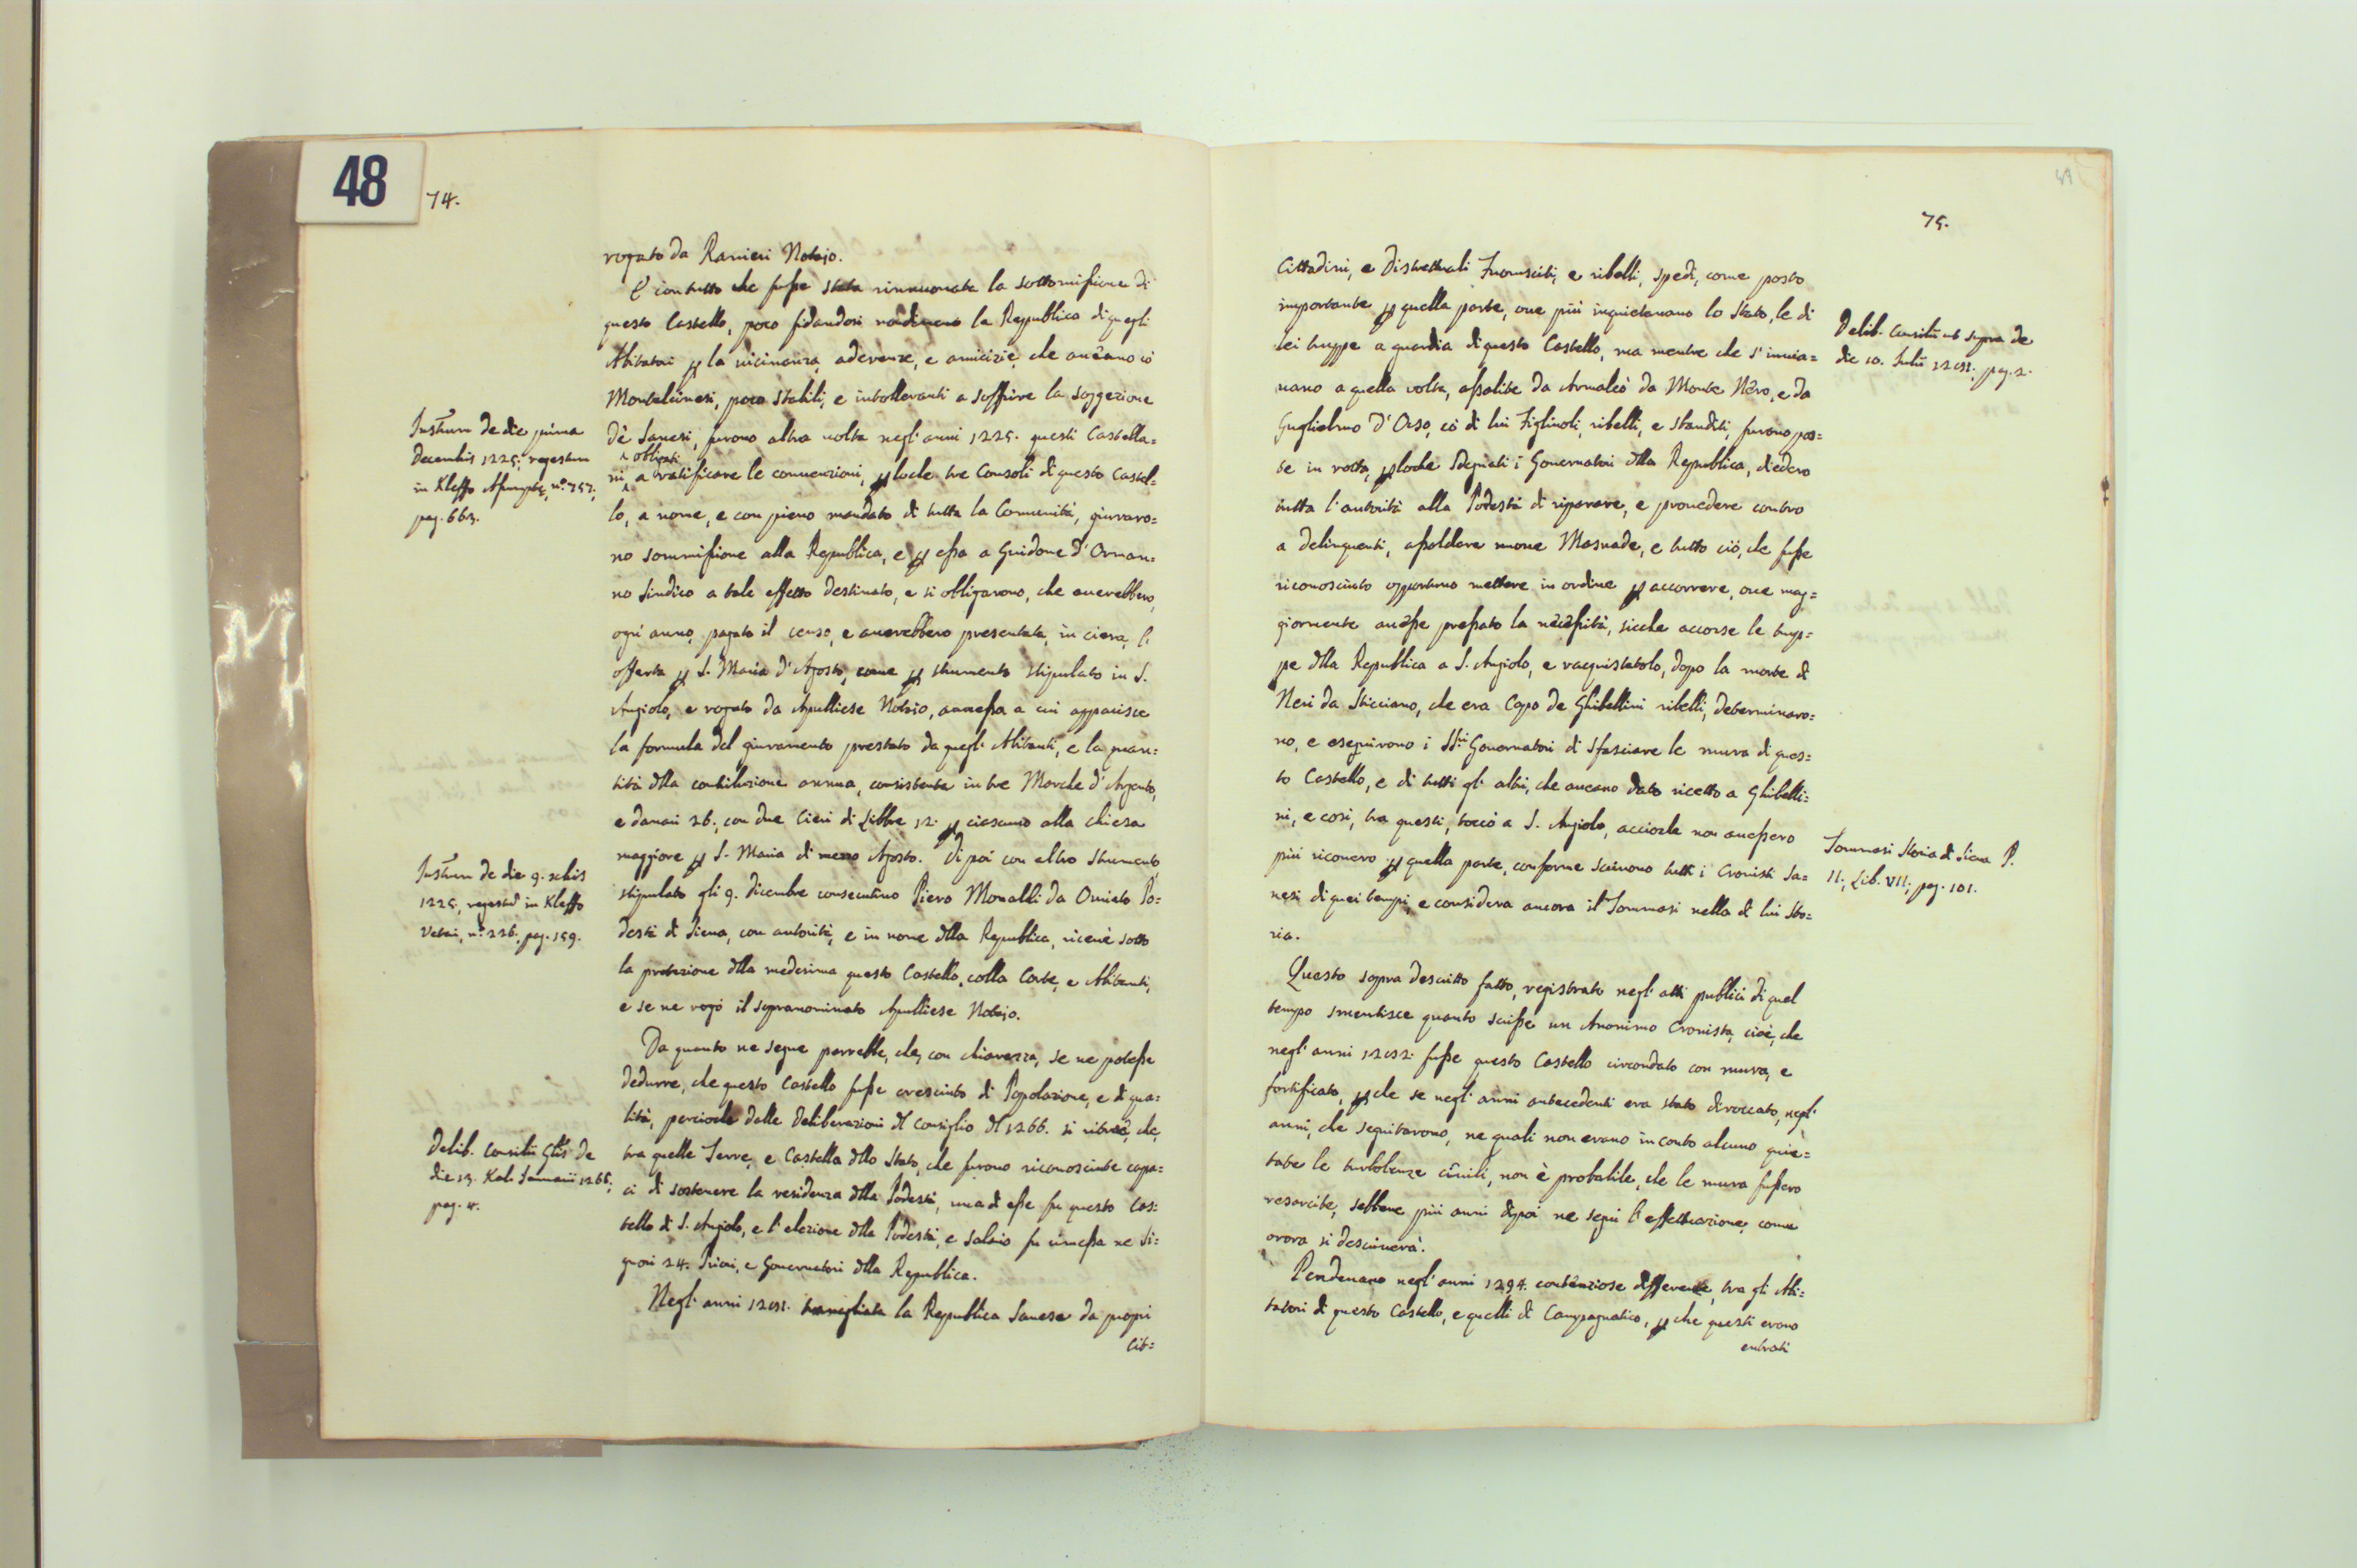 48
74.
rogato da Ranieri Notaio.
E contutto che fusse stata rinnuouata la sottomissione di
questo Castello, poco fidandosi nondimeno la Republica di quegli
Abitatori per la uicinanza, aderenze, e amicizie, che aueano co
Montalcinesi, poco stabili, e intolleranti a soffrire la soggezione
de Sanesi, furono altra uolta negl'anni 1225. questi Castella=
obligati
ni a ratificare le conuenzioni, perloche tre Consoli di questo Castel=
lo, a nome, e con pieno mandato di tutta la Comunità, giuraro=
no sommissione alla Republica, e per essa a Guidone d'Orman=
no Sindico a tale effetto destinato, e si obligarono, che auerebbero,
ogni anno, pagato il censo, e auerebbero presentata, in ciera, l'
offerta per S. Maria d'Agosto, come per strumento stipulato in S.
Angiolo, e rogato da Apulliese Notaio, annessa a cui apparisce
la formula del giuramento prestato da quegl'Abitanti, e la quan=
tità della contribuzione annua, consistente in tre Marche d'Argento,
e danari 26., con due Cieri di Libbre 12. per ciascuno alla chiesa
maggiore per S. Maria di mezzo Agosto. Di poi con altro Strumento
stipulato gli 9. dicembre consecutiuo Piero Monaldi da Oruieto Po=
destà di Siena, con autorità, e in nome della Republica, riceuè sotto
la protezione della medesima questo Castello, colla Corte, e Abitanti,
e se ne rogò il sopranominato Apulliese Notaio.
Da quanto ne segue parrebbe, che, con chiarezza, se ne potesse
dedurre, che questo Castello fusse cresciuto di Popolazione, e di qua=
lità, percioche dalle deliberazioni del Consiglio del 1266. si ritrae, che,
tra quelle Terre, e Castella dello Stato, che furono riconosciute capa=
ci di sostenere la residenza della Podestà, una di esse fu questo Cas=
tello di S. Angiolo, e l'elezione della Podestà, e salario fu rimessa ne Si=
gnori 24. Priori, e Gouernatori della Republica.
Negl'anni 1281. trauagliata la Republica Sanese da propri
Cit=
Instrum de die prima
Decembris 1225., regestum
in Kleffo Assumptę, nº. 757.,
pag. 663.
Instrum de die 9. xbris
1225., registrd in Kleffo
Veteri, nº. 226. pag. 159.
Delib. Consilii Glis de
die 13. Kal. Januarii 1266.,
pag. 4.
75.
Cittadini, e Distrettuali Fuorusciti, e ribelli, spedì, come posto
importante per quella parte, oue più inquietauano lo Stato, le di
lei truppe a guardia di questo Castello, ma mentre che s'inuia=
uano a quella uolta, assalite da Armaleò da Monte Nero, e da
Guglielmo d'Orso, co di lui Figliuoli, ribelli, e sbanditi, furono pos=
te in rotta, perloche sdegnati i Gouernatori della Republica, diedero
tutta l'autorità alla Podestà di riparare, e prouedere contro
a delinquenti, assoldare nuoue Masnade, e tutto ciò, che fusse
riconosciuto opportuno mettere in ordine per accorrere, oue mag=
giormente auesse pressato la necessità, sicche accorse le trup=
pe della Republica a S. Angiolo, e racquistatolo, dopo la morte di
Neri da Sticciano, che era Capo de Ghibellini ribelli, determinaro=
no, e eseguirono i Ssri Gouernatori di sfasciare le mura di ques=
to Castello, e di tutti gl'altri, che aueano dato ricetto a Ghibelli=
ni, e così, tra questi, toccò a S. Angiolo, accioche non auessero
più ricouero per quella parte, conforme scriuono tutti i Cronisti Sa=
nesi di quei tempi, e considera ancora il Tommasi nella di lui Sto=
ria.
Questo sopra descritto fatto, registrato negl'atti publici di quel
tempo smentisce quanto scrisse un Anonimo Cronista, cioè, che
negl'anni 1282. fusse questo Castello circondato con mura, e
fortificato, perche se negl'anni antecedenti era stato diroccato, negl'
anni, che seguitarono, ne quali non erano in conto alcuno quie=
tate le turbolenze ciuili, non è probabile, che le mura fussero
resarcite, sebbene più anni dipoi ne seguì l'effettuazione, come
orora si descriuerà.
Pendeuano negl'anni 1294. contenziose differenze, tra gli Abi=
tatori di questo Castello, e quelli di Campagnatico, per che questi erano
entrati
Delib. Consilii ut supra de
die 10. Julii 1281. pag. 2.
Tommasi Storia di Siena P.
II., Lib. VII., pag. 101.